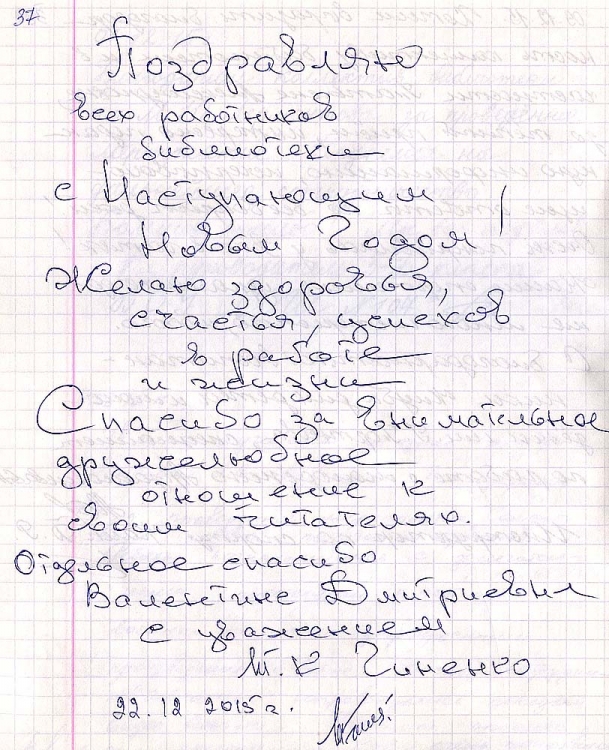 37
Поздравляю
всех работников
библиотеки
с Наступающим
Новым Годом!
Желаю здоровья,
счастья, успехов
в работе
и жизни
Спасибо за внимательное
дружелюбное
отношение к
своим читателям.
Отдельное спасибо
Валентине Дмитриевне
с уважением
22.12 2015 г.